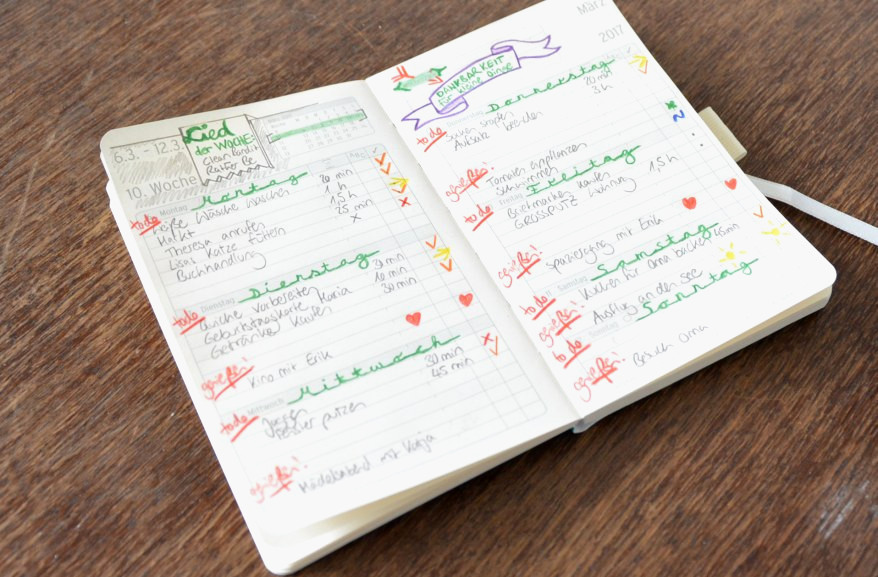 6.3. - 12.3.
10. Woche
Lied
der WOCHE
Clean Bandit
Montag
Montag
to do
weiße Wäsche waschen 20 min
Markt 1 h
Theresa anrufen 1,5 h
Lisas Katze füttern 25 min
Buchhandlung x
Dienstag
Dienstag
to do
Küche vorbereiten 30 min
Geburtstagskarte Maria 10 min
Getränke kaufen 30 min
genießen!
Kino mit Erik
Mittwoch
Mittwoch
to do
30 min
Fenster putzen 45 min
genießen!
Mädelsabend mit Katja
März
2017
DANKBARKEIT
für kleine Dinge
Donnerstag
to do
20 min
Aufsatz 3 h
genießen!
Tomaten einpflanzen
schwimmen
Freitag
Freitag
to do
kaufen
GROSSPUTZ Wohnung 1,5 h
genießen!
Spaziergang mit Erik
Samstag
Samstag
to do
Kuchen für Oma backen 45 min
genießen!
Ausflug an den See
Sonntag
to do
genießen!
Besuch Oma